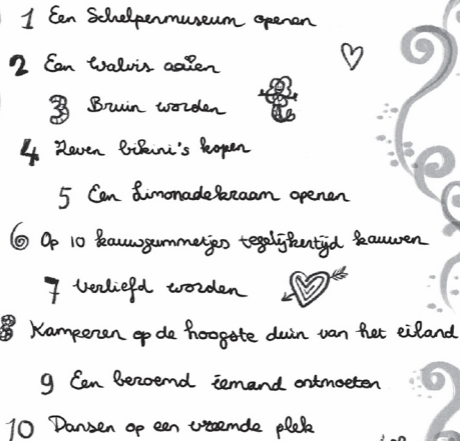 1 Een Schelpenmuseum openen
2 Een walvis aaien
3 Bruin worden
4 Zeven bikini's kopen
5 Een Limonadekraam openen
6 Op 10 kauwgummetjes tegelijkertijd kauwen
7 verliefd worden
8 Kamperen op de hoogste duin van het eiland
9 Een beroemd iemand ontmoeten
10 Dansen op een vreemde plek